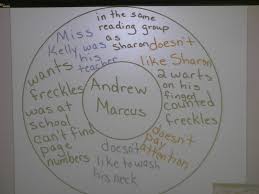 in the same
reading group
as
Sharon
Miss
Kelly was
his
teacher
doesn't
like Sharon
2 warts
on his
finger
counted
freckles
doesn't
pay
attention
doesn't
like to wash
his neck
can't find
page
numbers
was at
school
wants
freckles
Andrew
Marcus